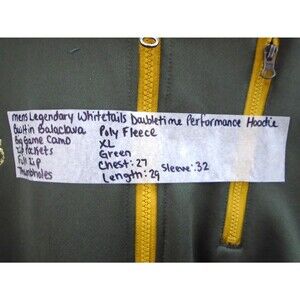 mens Legendary Whitetails Doubletime Performance Hoodie
Built in Balaclava
Big Game Camo
Zip Pockets
Full Zip
Thumbholes
Poly Fleece
XL
Green
Chest: 27
Sleeve: 32
Length: 29